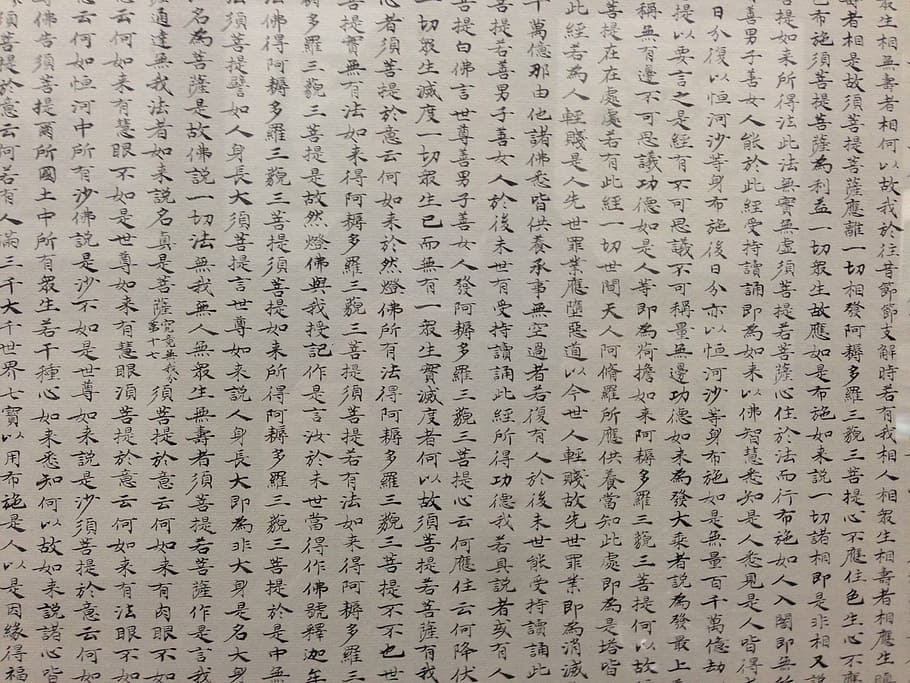 衆生相無壽者相何以故我於往昔節節支解時若有我相人相衆生相壽者相應生瞋
者相是故須菩提菩薩應離一切相發阿耨多羅三藐三菩提心不應住色生心不應
色布施須菩提菩薩為利益一切衆生故應如是布施如来說一切諸相即是非相又說
菩提如来所得法此法無實無虛須菩提若菩薩心住於法而行布施如人入闇即無所
善男子善女人能於此經受持讀誦即為如来以佛智慧悉知是人悉見是人皆得
日分復以恒河沙等身布施後日分亦以恒河沙等身布施如是無量百千萬億劫
提以要言之是經有不可思議不可稱量無邊功德如来為發大乘者說為發最上
稱無有邊不可思議功德如是人等即為荷擔如来阿耨多羅三藐三菩提何以故
菩提在在處處若有此經一切世間天人阿脩羅所應供養當知此處即為是塔皆
此經若為人輕賤是人先世罪業應墮惡道以今世人輕賤故先世罪業即為消滅
千萬億那由他諸佛悉皆供養承事無空過者若復有人於後末世能受持讀誦此
菩提若善男子善女人於後末世有受持讀誦此經所得功德我若具說者或有人
菩提白佛言世尊善男子善女人發阿耨多羅三藐三菩提心云何應住云何降伏
一切衆生滅度一切衆生已而無有一衆生實滅度者何以故須菩提若菩薩有我
心者須菩提於意云何如来於然燈佛所有法得阿耨多羅三藐三菩提不不也世
菩提實無有法如来得阿耨多羅三藐三菩提須菩提若有法如来得阿耨多羅三
耨多羅三藐三菩提是故然燈佛與我授記作是言汝於来世當得作佛號釋迦牟
法佛得阿耨多羅三藐三菩提須菩提如来所得阿耨多羅三藐三菩提於是中無
法須菩提譬如人身長大須菩提言世尊如来說人身長大即為非大身是名大身
名為菩薩是故佛說一切法無我無人無衆生無壽者須菩提若菩薩作是言我
通達無我法者如来說名真是菩薩究竟無我分第十七須菩提於意云何如来有肉眼不如
云何如来有慧眼不如是世尊如来有慧眼須菩提於意云何如来有法眼不如
意云何如恒河中所有沙佛說是沙不如是世尊如来說是沙須菩提於意云何如
佛告須菩提爾所國土中所有衆生若干種心如来悉知何以故如来說諸心皆
須菩提於意云何若有人滿三千大千世界七寶以用布施是人以是因緣得福